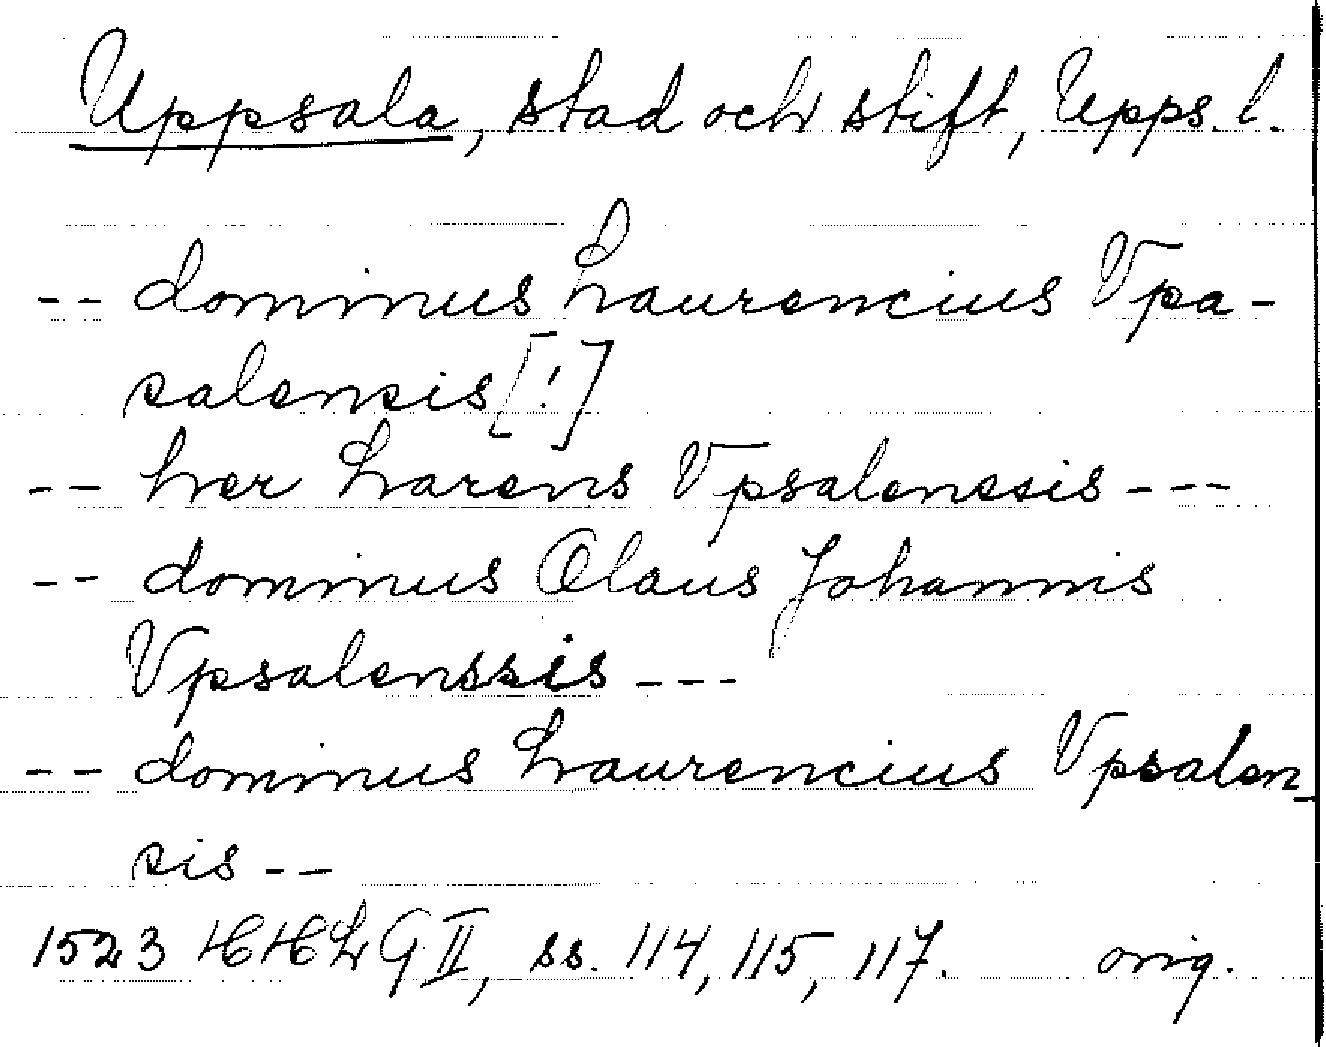 Uppsala, stad och stift, Upps. l.
-- dominus Laurencius Vpa-
salensis [!]
-- her Larens Vpsalenssis ---
-- dominus Olaus Johannis
Vpsalenssis ---
-- dominus Laurencius Vpsalen-
sis --
1523 HHLG II, ss. 114, 115, 117. orig.